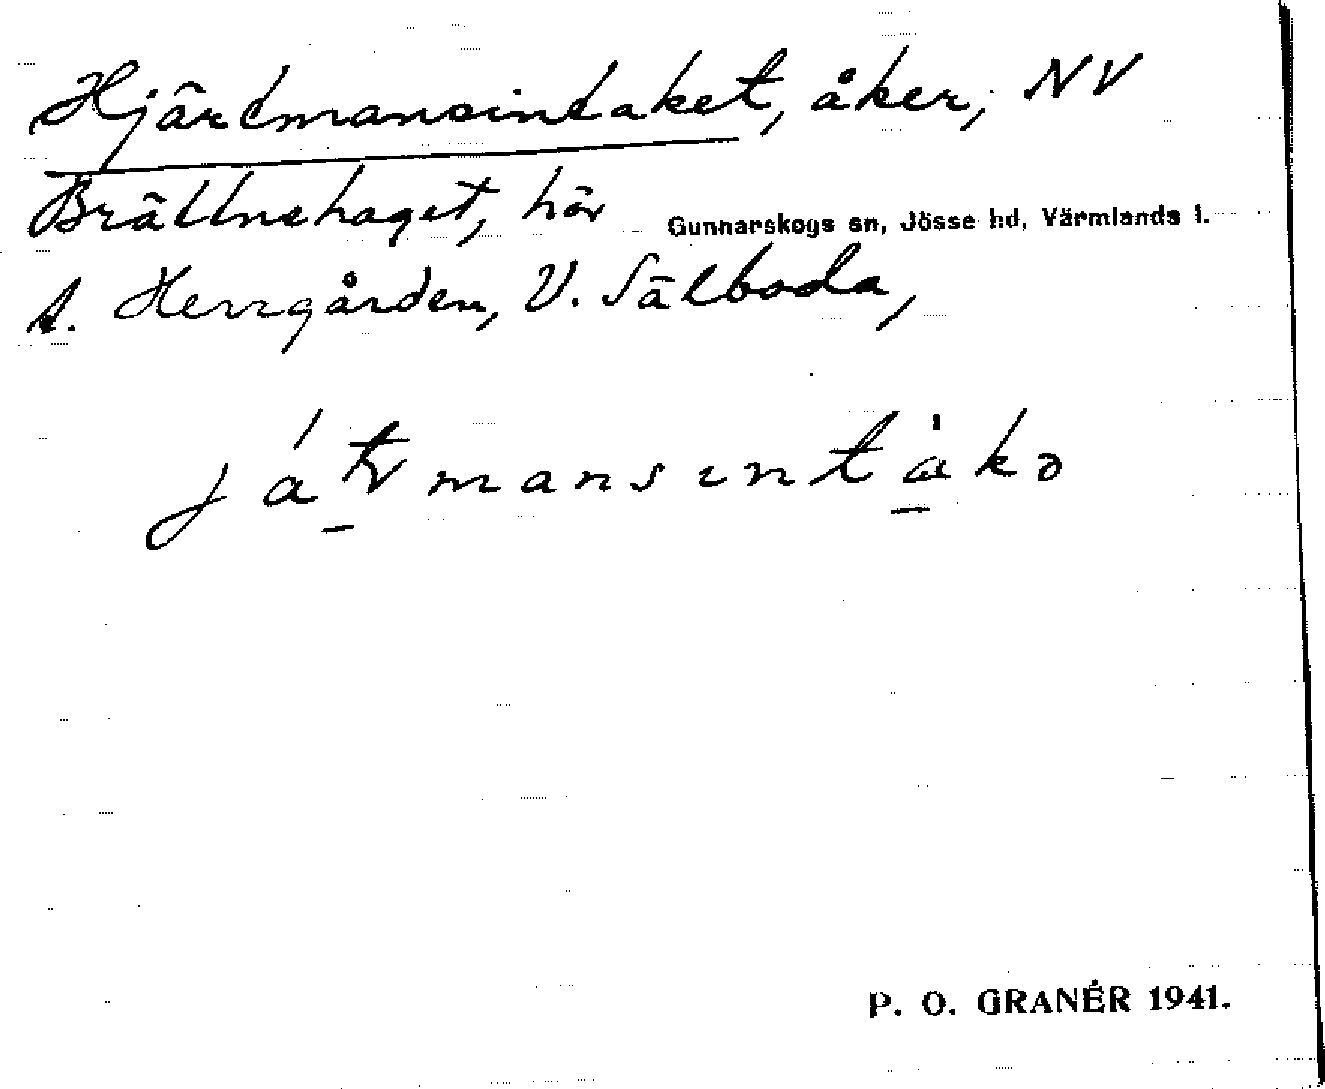 Hjärtmansintaket, åker, NV
Brättnehaget, hör
Gunnarskogs sn, Jösse hd, Värmlands l.
t. Herrgården, V. Sälboda,
P. O. GRANÉR 1941.